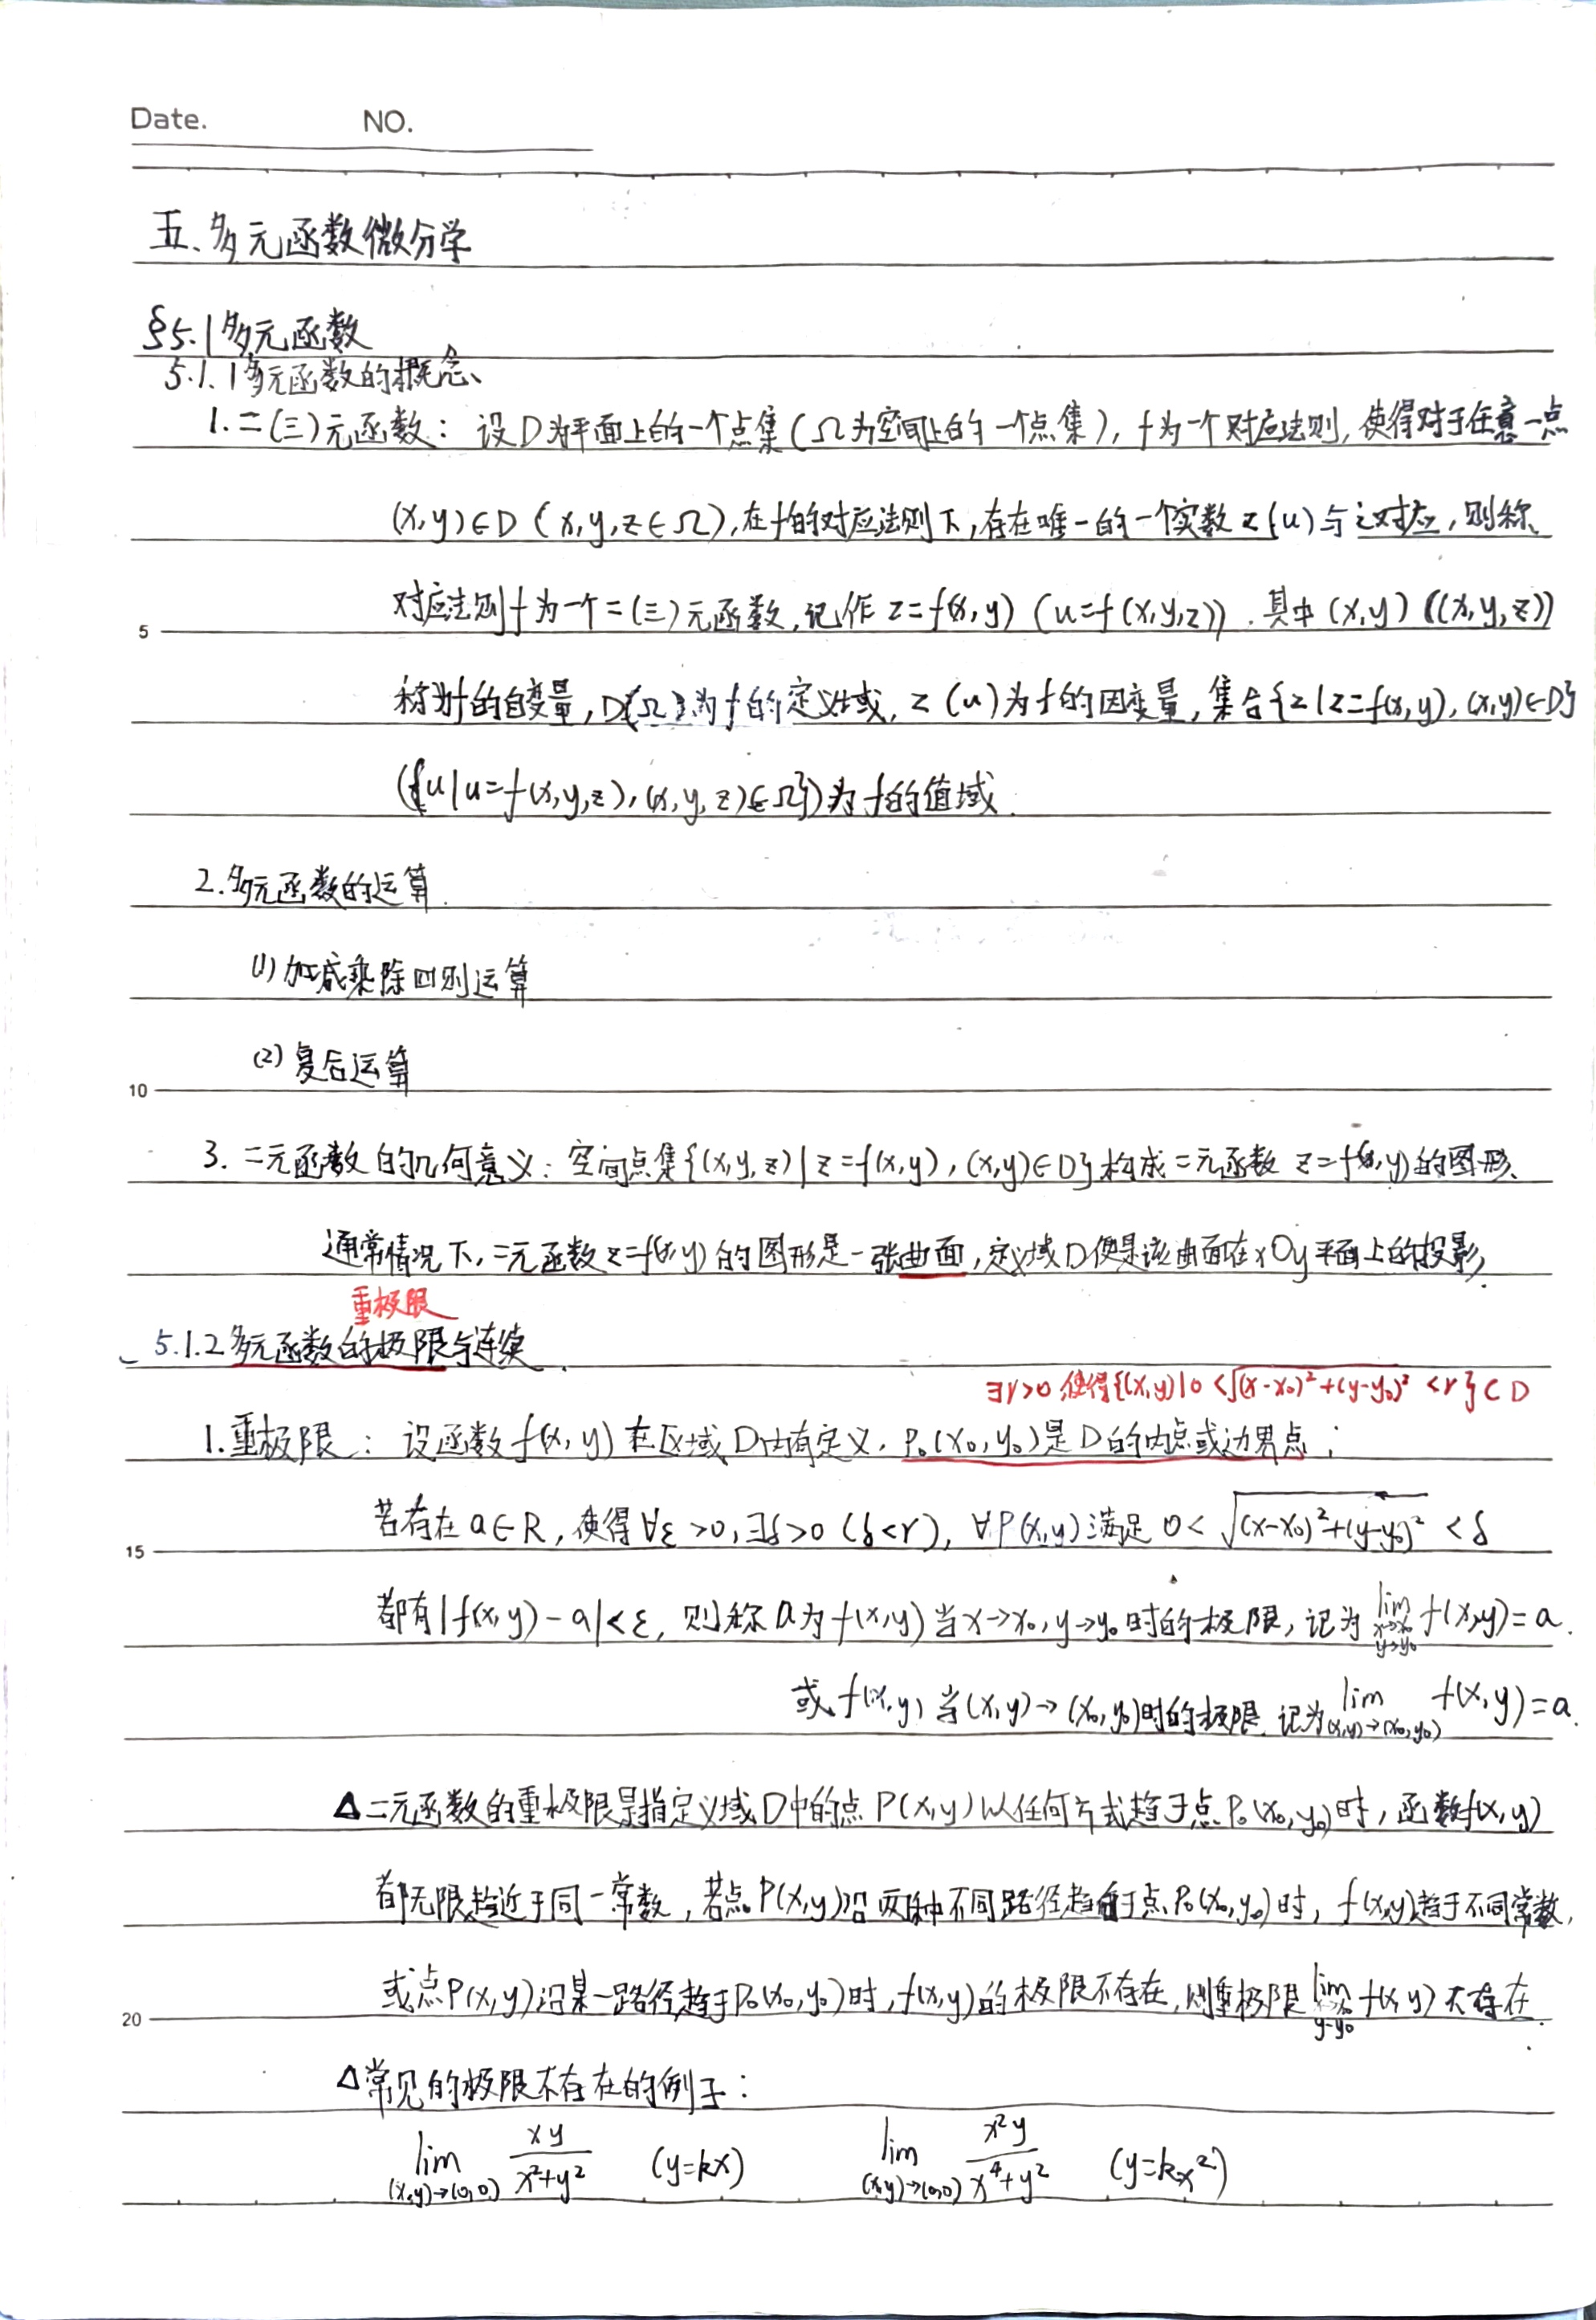 Date. NO.
五、多元函数微分学
§5.1 多元函数
5.1.1 多元函数的概念
1.二(三)元函数: 设D为平面上的一个点集(Ω为空间上的一个点集), f为一个对应法则, 使得对于任意一点
(x,y)∈D (x,y,z∈Ω), 在f的对应法则下, 存在唯一的一个实数z(u)与之对应, 则称
5 对应法则f为一个二(三)元函数, 记作 z=f(x,y) (u=f(x,y,z)). 其中(x,y)((x,y,z))
称为f的自变量, D(Ω)为f的定义域, z(u)为f的因变量, 集合{z|z=f(x,y),(x,y)∈D}
({u|u=f(x,y,z),(x,y,z)∈Ω})为f的值域.
2.多元函数的运算.
(1)加减乘除四则运算
(2)复合运算
10
3.二元函数的几何意义: 空间点集{(x,y,z)|z=f(x,y),(x,y)∈D}构成二元函数 z=f(x,y)的图形.
通常情况下, 二元函数z=f(x,y)的图形是一张曲面, 定义域D便是该曲面在xOy平面上的投影.
重极限
5.1.2 多元函数的极限与连续.
∃r>0 使得{(x,y)|0<√((x-x₀)²+(y-y₀)²)<r}⊂D
1.重极限: 设函数f(x,y)在区域D内有定义, P₀(x₀,y₀)是D的内点或边界点;
15 若存在a∈R, 使得∀ε>0, ∃δ>0 (δ<r), ∀P(x,y)满足 0<√((x-x₀)²+(y-y₀)²)<δ
都有|f(x,y)-a|<ε, 则称a为f(x,y)当x→x₀,y→y₀时的极限, 记为 lim x→x₀ y→y₀ f(x,y)=a.
或f(x,y)当(x,y)→(x₀,y₀)时的极限. 记为 lim (x,y)→(x₀,y₀) f(x,y)=a.
Δ二元函数的重极限是指定义域D中的点P(x,y)以任何方式趋于点P₀(x₀,y₀)时, 函数f(x,y)
都无限趋近于同一常数, 若点P(x,y)沿两种不同路径趋于点P₀(x₀,y₀)时, f(x,y)趋于不同常数,
20 或点P(x,y)沿某一路径趋于P₀(x₀,y₀)时, f(x,y)的极限不存在, 则重极限 lim x→x₀ y→y₀ f(x,y)不存在.
Δ常见的极限不存在的例子:
lim (x,y)→(0,0) xy/(x²+y²) (y=kx) lim (x,y)→(0,0) x²y/(x⁴+y²) (y=kx²)